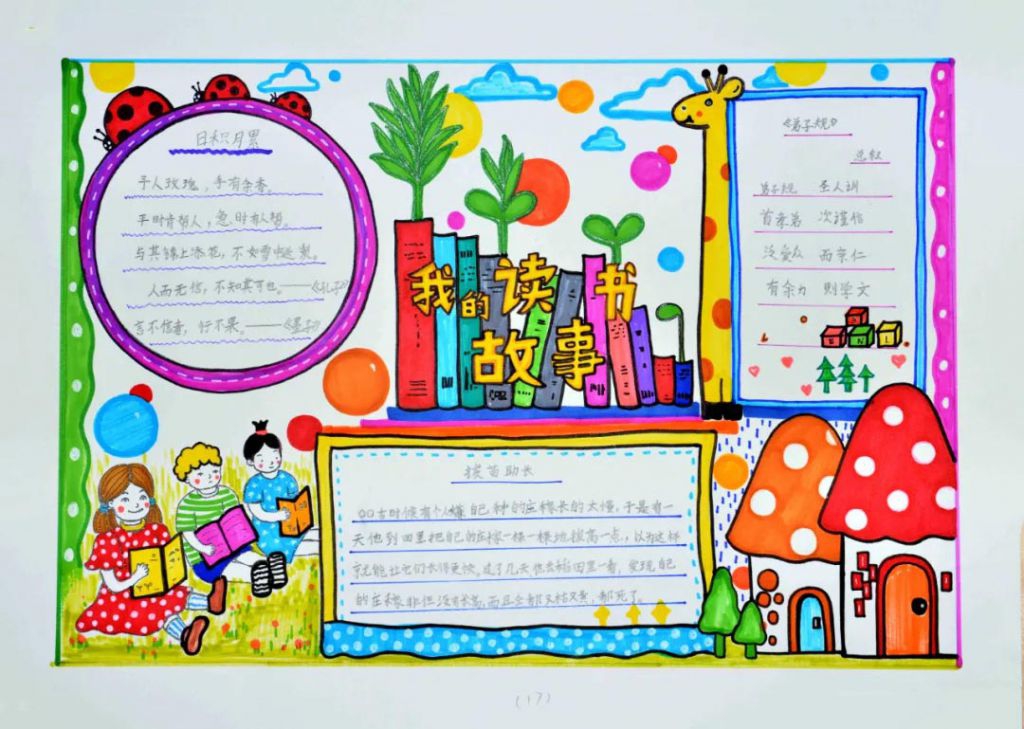 日积月累
予人玫瑰，手有余香。
平时肯帮人，急时有人帮。
与其锦上添花，不如雪中送炭。
人而无信，不知其可也。——《礼子》
言不信者，行不果。——《墨子》
我的读书
故事
《弟子规》
总叙
弟子规 圣人训
首孝弟 次谨信
泛爱众 而亲仁
有余力 则学文
拔苗助长
古时候有个人嫌自己种的庄稼长的太慢，于是有一
天他到田里把自己的庄稼一棵一棵地拔高一点，以为这样
就能让它们长得更快。过了几天他去稻田里一看，发现自己
的庄稼非但没有长高，而且全都又枯又黄，都死了。
(17)